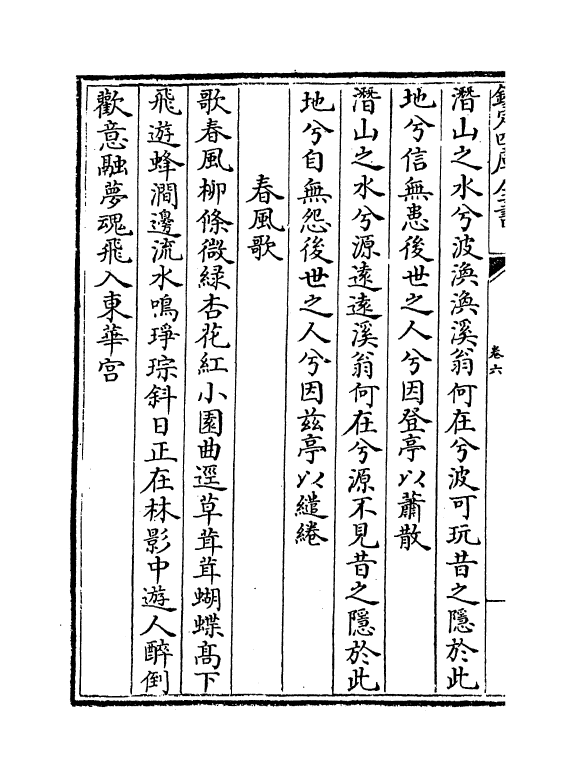 欽定四庫全書
卷六
潛山之水兮波渙渙溪翁何在兮波可玩昔之隱於此
地兮信無患後世之人兮因登亭以蕭散
潛山之水兮源遠遠溪翁何在兮源不見昔之隱於此
地兮自無怨後世之人兮因茲亭以繾綣
春風歌
歌春風柳條微綠杏花紅小園曲逕草茸茸蝴蝶高下
飛遊蜂澗邊流水鳴琤琮斜日正在林影中遊人醉倒
歡意融夢魂飛入東華宮